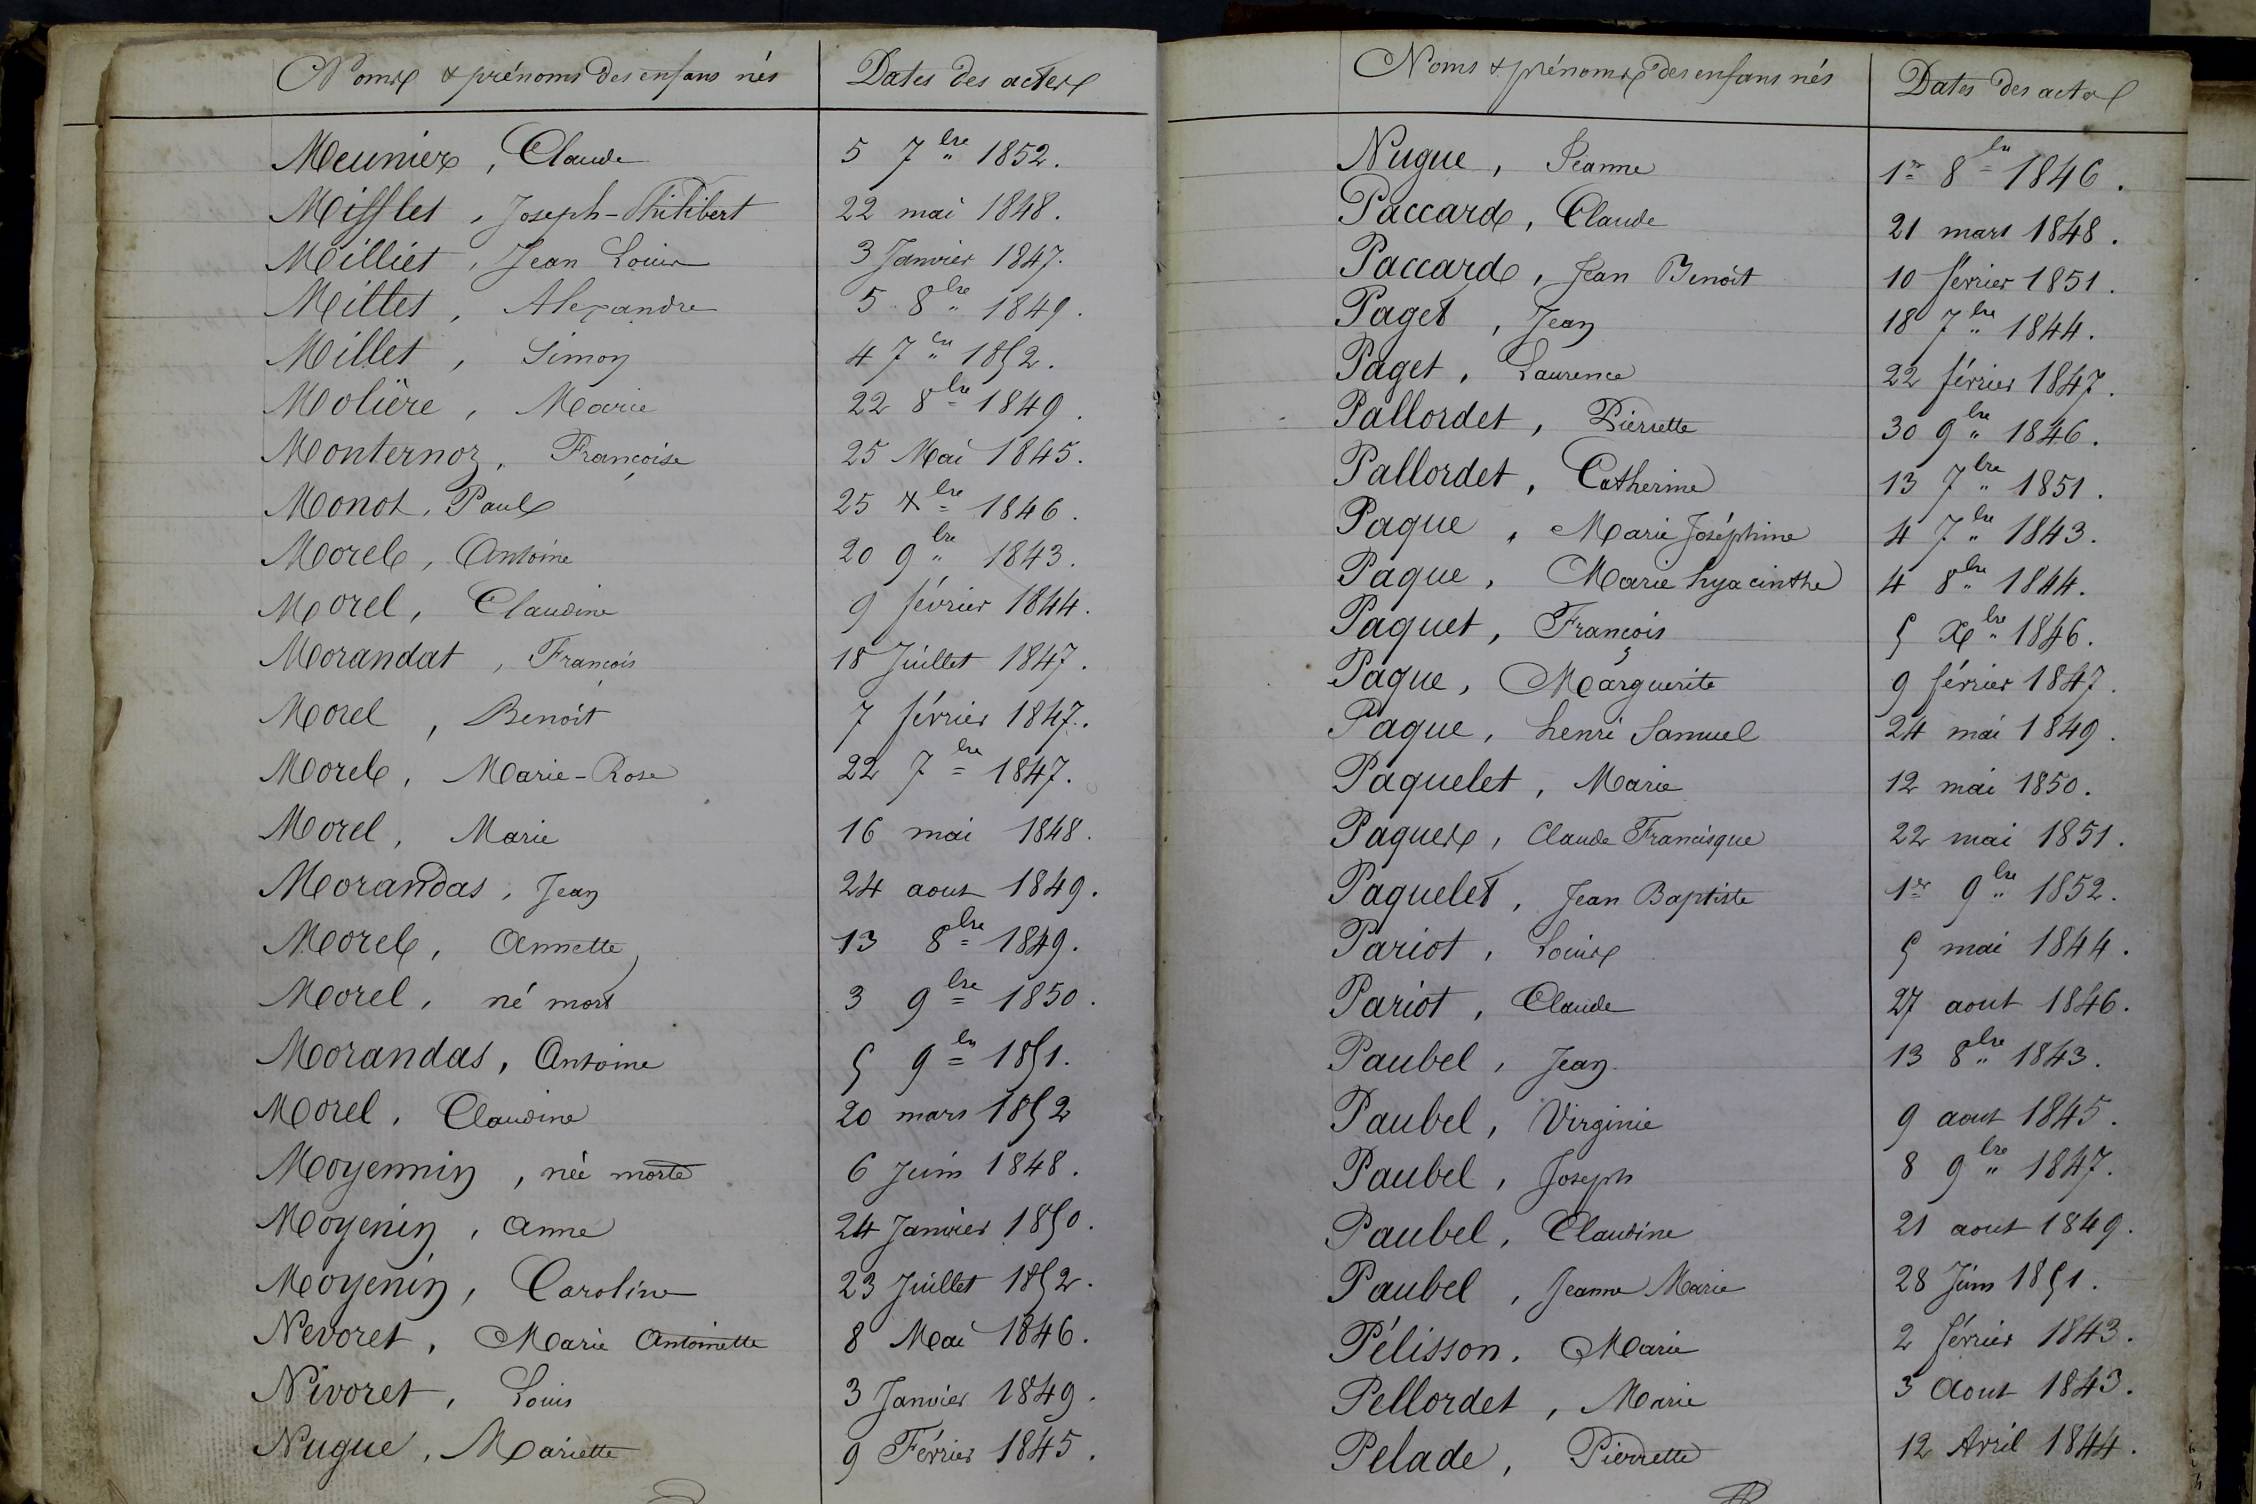 Noms & prénoms des enfans nés Dates des actes
Meunier, Claude 5 7bre 1852.
Mifflet, Joseph-Philibert 22 mai 1848.
Milliet, Jean Louis 3 Janvier 1847.
Millet, Alexandre 5 8bre 1849.
Millet, Simon 4 7bre 1852.
Molière, Marie 22 8bre 1849.
Monternoz, Françoise 25 Mai 1845.
Monot, Paul 25 Xbre 1846.
Morel, Antoine 20 9bre 1843.
Morel, Claudine 9 février 1844.
Morandat, François 18 Juillet 1847.
Morel, Benoît 7 février 1847.
Morel, Marie-Rose 22 7bre 1847.
Morel, Marie 16 mai 1848.
Morandas, Jean 24 aout 1849.
Morel, Annette 13 8bre 1849.
Morel, né mort 3 9bre 1850.
Morandas, Antoine 5 9bre 1851.
Morel, Claudine 20 mars 1852
Moyennin, née morte 6 Juin 1848.
Moyenin, Anne 24 Janvier 1850.
Moyenin, Caroline 23 Juillet 1852.
Nevoret, Marie Antoinette 8 Mai 1846.
Nivoret, Louis 3 Janvier 1849.
Nugue, Mariette 9 Février 1845.
Noms & prénoms des enfans nés Dates des actes
Nugue, Jeanne 1er 8bre 1846.
Paccard, Claude 21 mars 1848.
Paccard, Jean Benoît 10 février 1851.
Paget, Jean 18 7bre 1844.
Paget, Laurence 22 février 1847.
Pallordet, Pierrette 30 9bre 1846.
Pallordet, Catherine 13 7bre 1851.
Paque, Marie Joséphine 4 7bre 1843.
Paque, Marie hyacinthe 4 8bre 1844.
Paquet, François 5 Xbre 1846.
Paque, Marguerite 9 février 1847.
Paque, henri Samuel 24 mai 1849.
Paquelet, Marie 12 mai 1850.
Paquer, Claude Francisque 22 mai 1851.
Paquelet, Jean Baptiste 1er 9bre 1852.
Pariot, Louis 5 mai 1844.
Pariot, Claude 27 aout 1846.
Paubel, Jean 13 8bre 1843.
Paubel, Virginie 9 aout 1845.
Paubel, Joseph 8 9bre 1847.
Paubel, Claudine 21 aout 1849.
Paubel, Jeanne Marie 28 Juin 1851.
Pélisson, Marie 2 février 1843.
Pellordet, Marie 3 Aout 1843.
Pelade, Pierrette 12 Avril 1844.